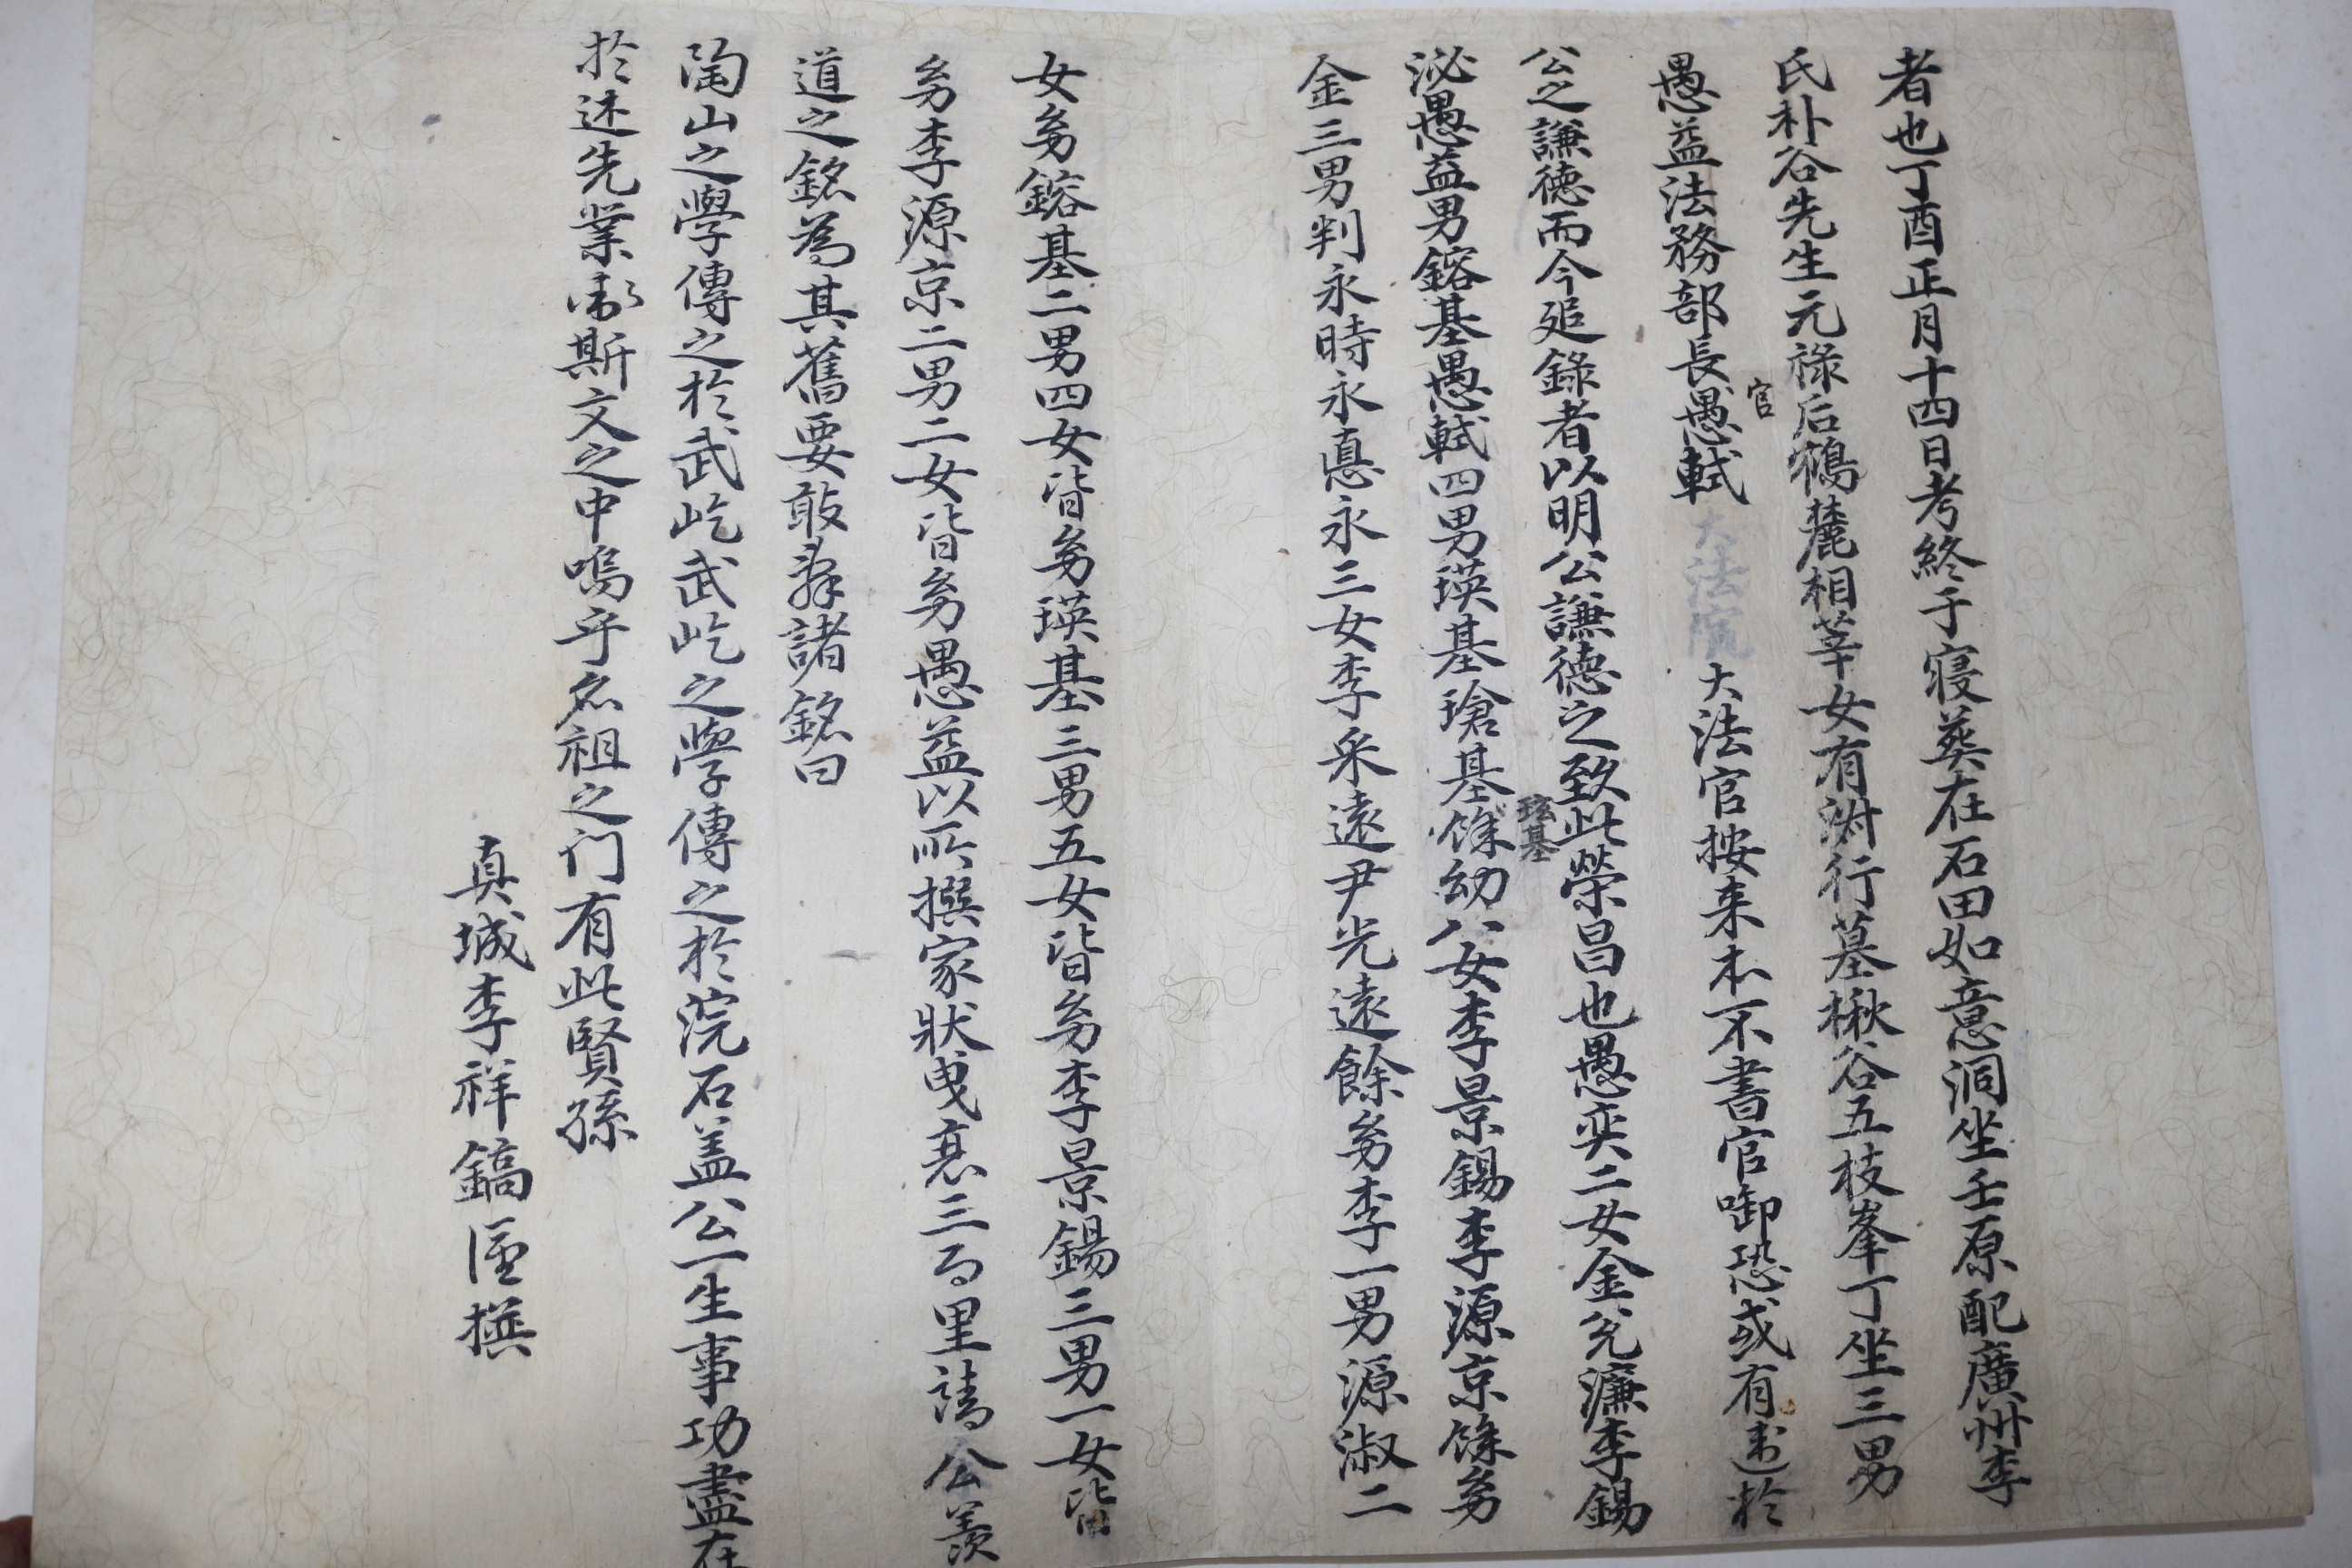 者也丁酉正月十四日考終于寢葬在石田如意洞坐壬原配廣州李
氏朴谷先生元祿后鶴麓相莘女有淑行墓楸谷五枝峯丁坐三男
愚益法務部長愚軾大法院大法官按來本不書官啣恐或有違於
官
公之謙德而今追錄者以明公謙德之致此榮昌也愚奕二女金兊濂李錫
泌愚益男鎔基愚軾四男瑛基瑲基餘幼八女李景錫李源京餘㓜
玹基
金三男判永時永悳永三女李采遠尹光遠餘㓜李一男源淑二
女㓜鎔基二男四女皆㓜瑛基三男五女皆㓜李景錫三男一女皆
㓜李源京二男二女皆㓜愚益以所撰家狀曳衰三百里請公羨
道之銘為其舊要敢辭諸銘曰
陶山之學傳之於武屹武屹之學傳之於浣石盖公一生事功盡在
於述先業衛斯文之中嗚乎名祖之门有此賢孫
真城李祥鎬謹撰